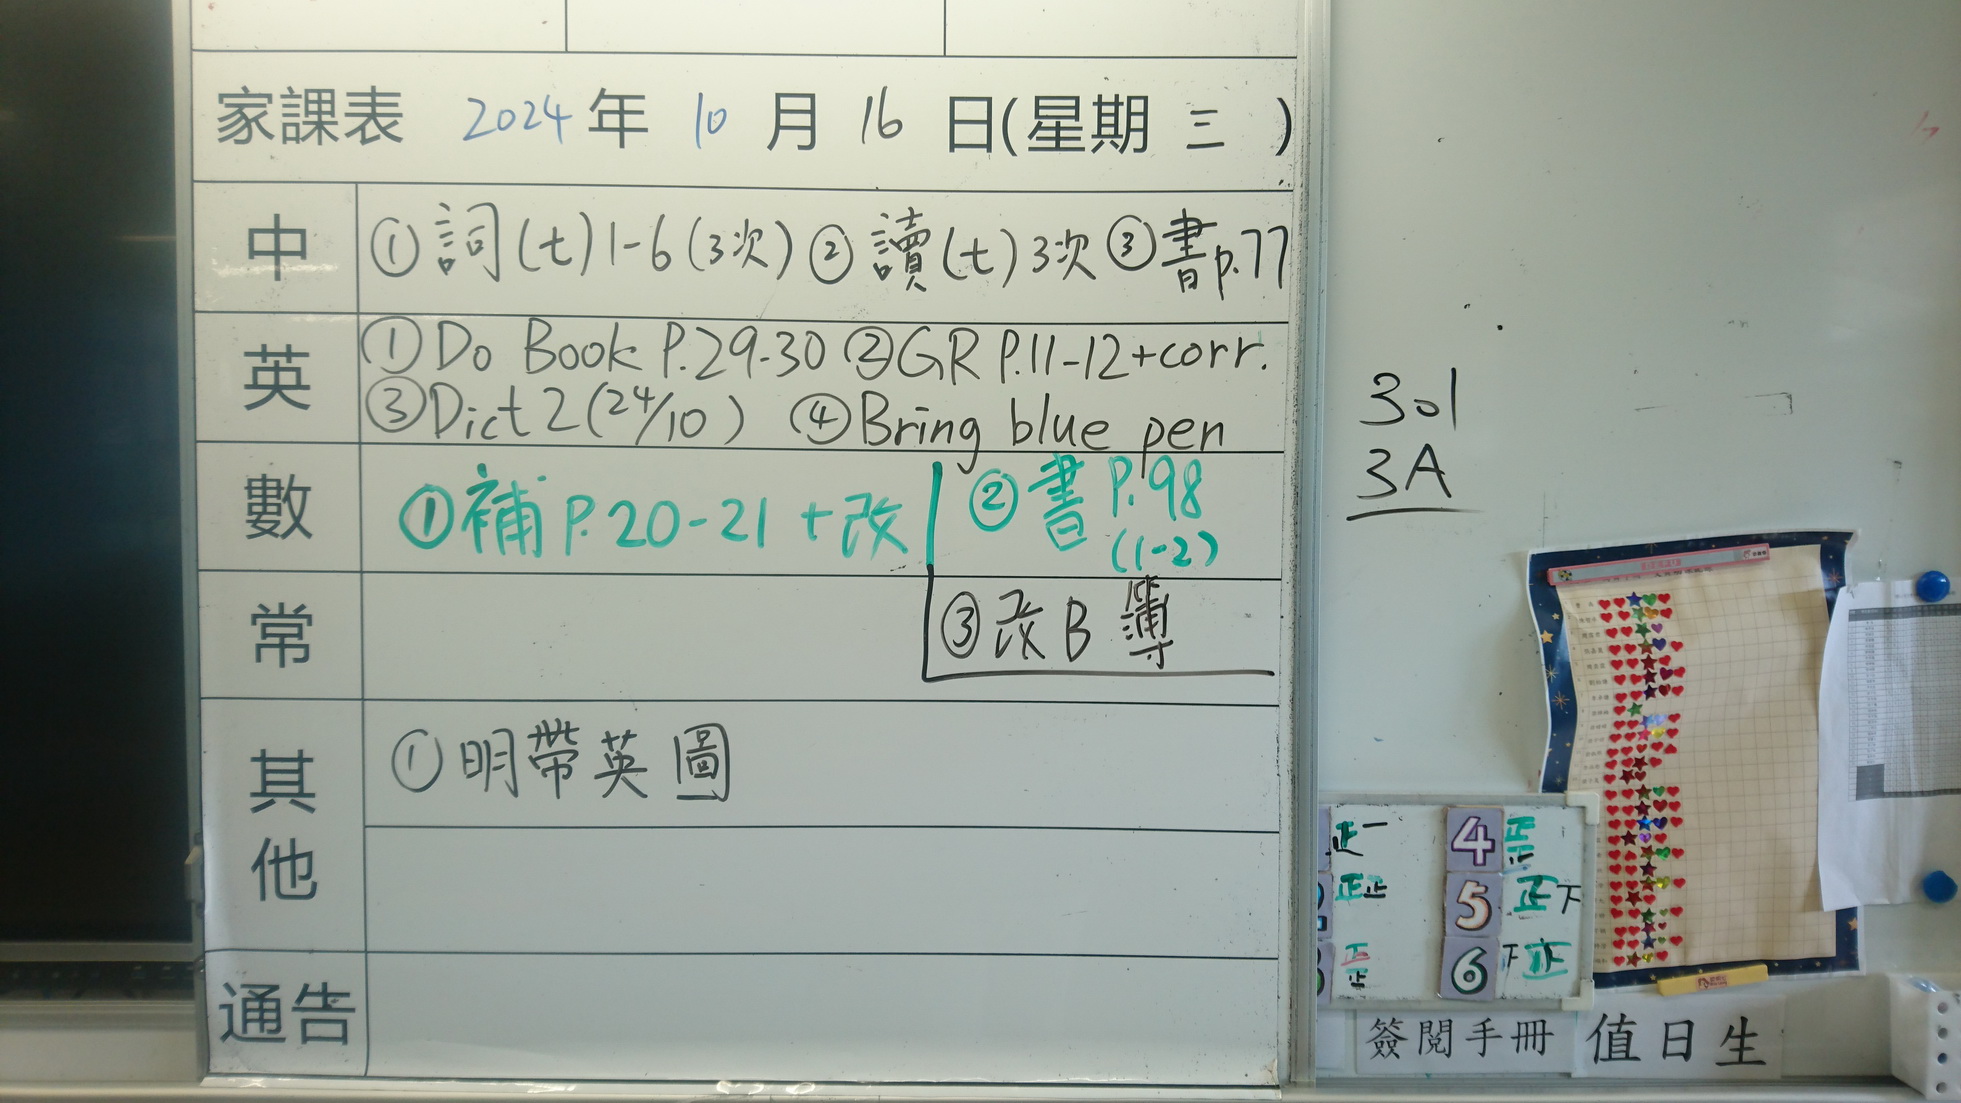 家課表 2024 年 10 月 16 日(星期 三 )
中 ①詞(七)1-6(3次) ②讀(七)3次 ③書p.77
英 ①Do Book P.29-30 ②GR P.11-12+corr.
③Dict 2(24/10) ④Bring blue pen
數 ①補 P.20-21 +改 ②書 P.98
(1-2)
常 ③改B簿
其他 ①明帶英圖
通告
301
3A
正一 4 正正
正正 5 正下
正正 6 下正
簽閱手冊 值日生